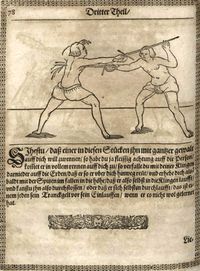 78
Dritter Theil /
SIhestu / daß einer in diesen Stücken ihn mit gantzer gewalt
auff dich will zurennen / so habe du fleissig achtung auff die Person /
kompt er in vollem rennen auff dich zu / so verfall du mit deiner Klingen
darnieder auff die Erden daß er so er über dich hinweg
mit der Spitzen fallen in die höhe daß er also selbst in die Klingen laufft /
und kanst ihn also durchstossen / oder daß er sich selbsten durchlaufft / das ist ei-
nem jeden sein Tranckgelt vor sein Einlauffen / wenn er es nicht wol gelernet
hat.
Lie-